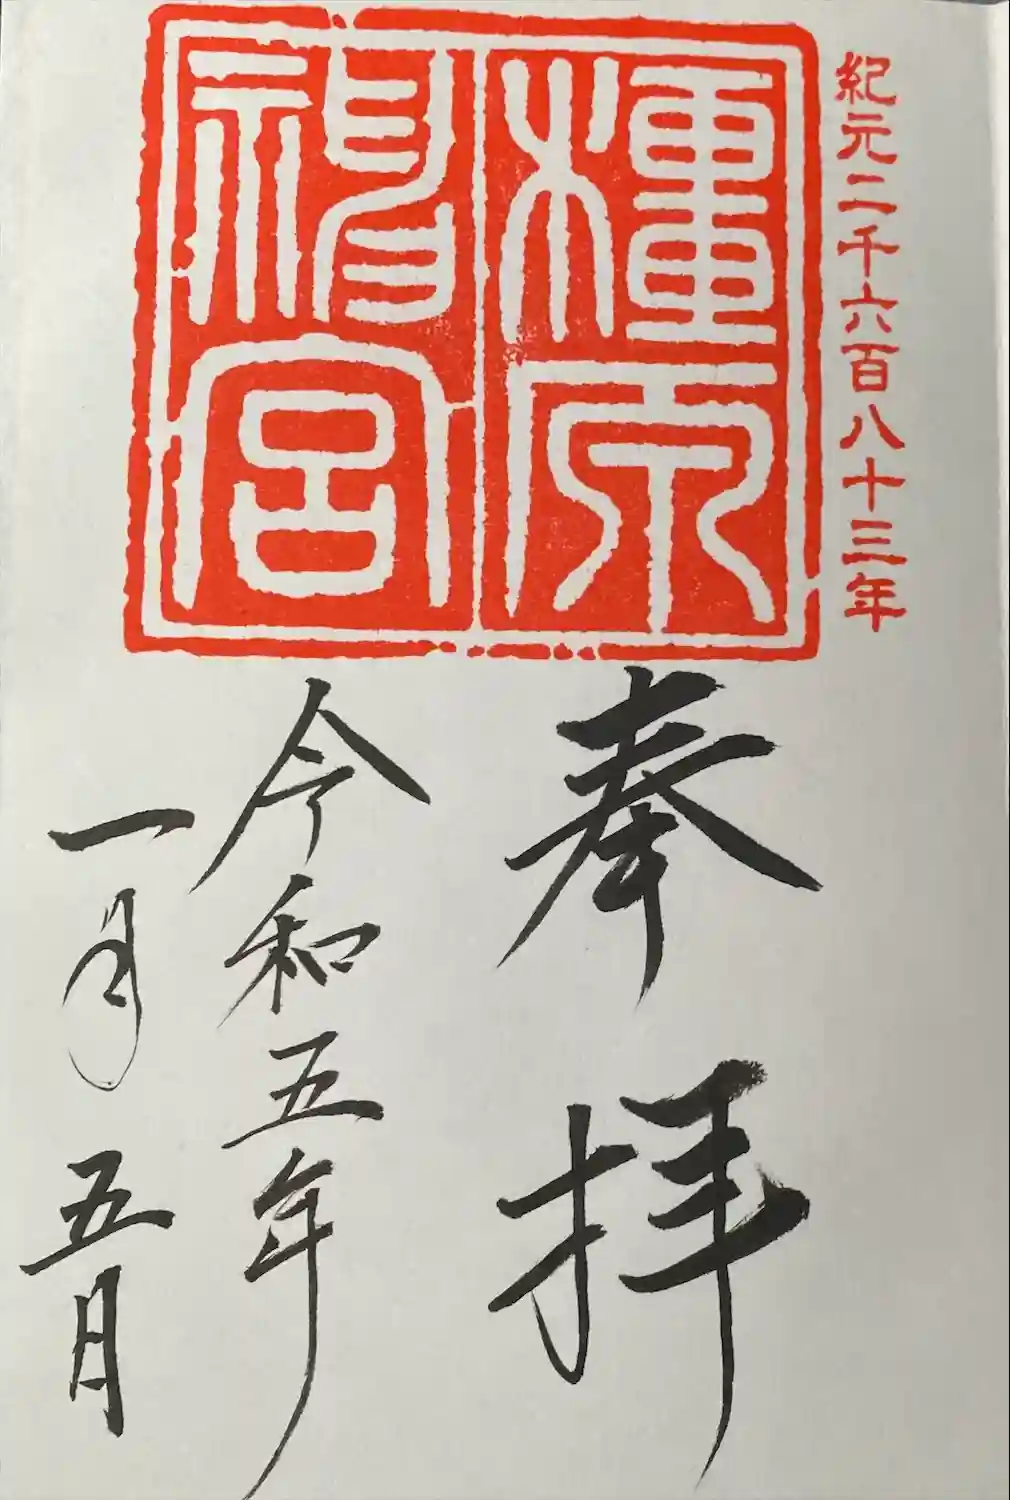 紀元二千六百八十三年
橿原
神宮
奉拝
令和五年
一月五日